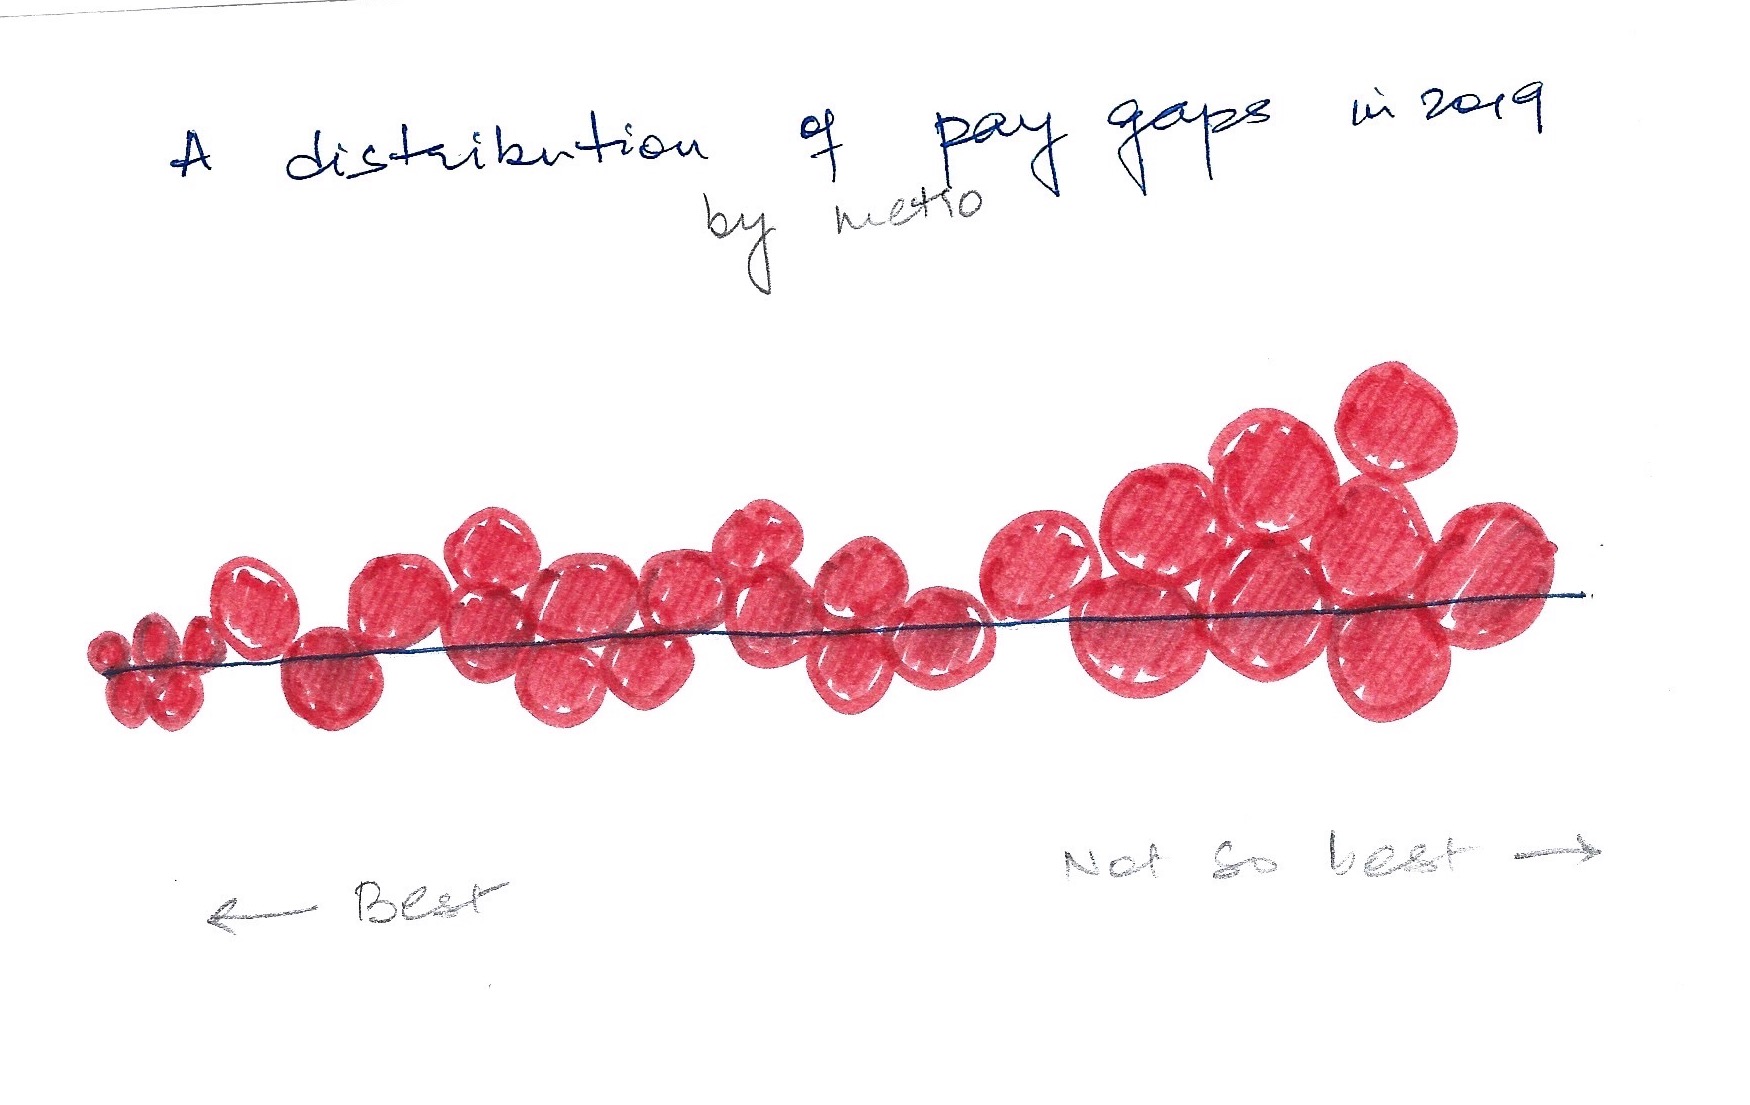 A distribution of pay gaps in 2019
by metro
Not so best →
← Best